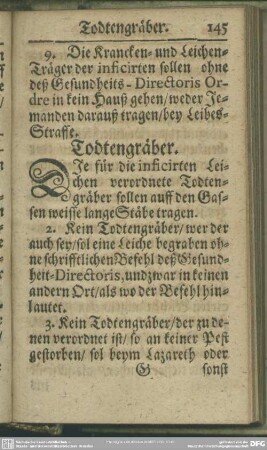 Todtengräber. 145
9. Die Krancken- und Leichen-
Träger der inficirten sollen ohne
deß Gesundheits-Directoris Or-
dre in kein Hauß gehen/ weder Je-
manden darauß tragen/ bey Leibes-
Straffe.
Todtengräber.
DIe für die inficirten Lei-
chen verordnete Todten-
gräber sollen auff den Gas-
sen weisse lange Stäbe tragen.
2. Kein Todtengräber/ wer der
auch sey/ sol eine Leiche begraben oh-
ne schrifftlichen Befehl deß Gesund-
heit-Directoris, und zwar in keinen
andern Ort/ als wo der Befehl hin-
lautet.
3. Kein Todtengräber/ der zu de-
nen verordnet ist/ so an keiner Pest
gestorben/ sol beym Lazareth oder
G sonst